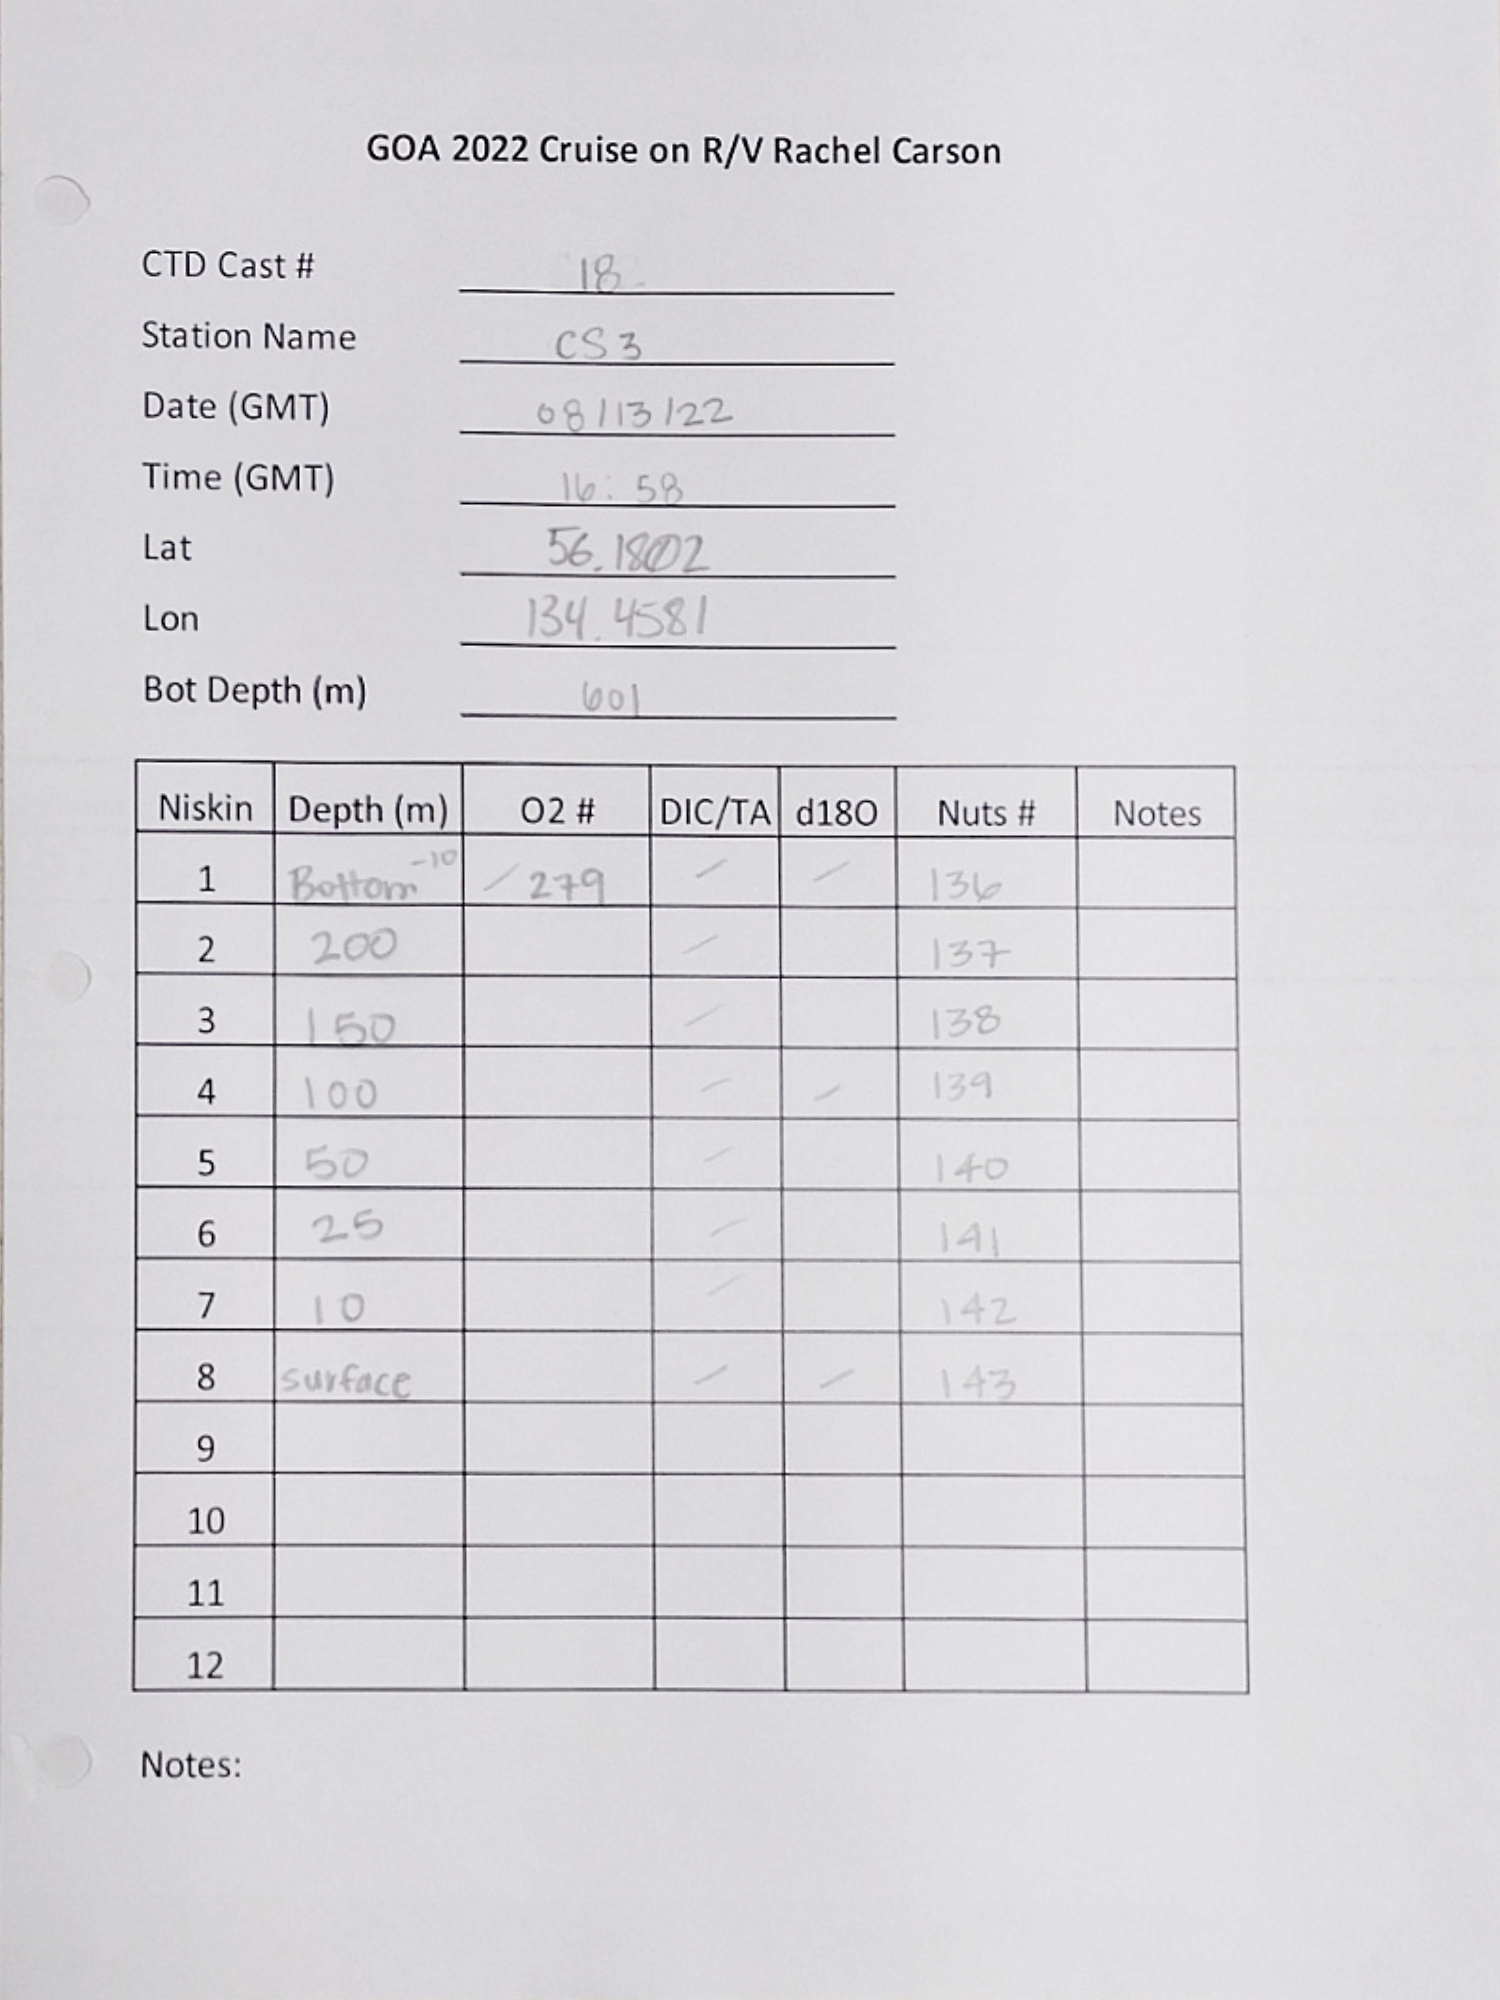 GOA 2022 Cruise on R/V Rachel Carson
CTD Cast # 18
Station Name CS3
Date (GMT) 08/13/22
Time (GMT) 16:58
Lat 56.1802
Lon 134.4581
Bot Depth (m) 601
Niskin Depth (m) O2 # DIC/TA d18O Nuts # Notes
1 Bottom -10 / 279 / / 136
2 200 / 137
3 150 / 138
4 100 / / 139
5 50 / 140
6 25 / 141
7 10 / 142
8 surface / / 143
9
10
11
12
Notes: